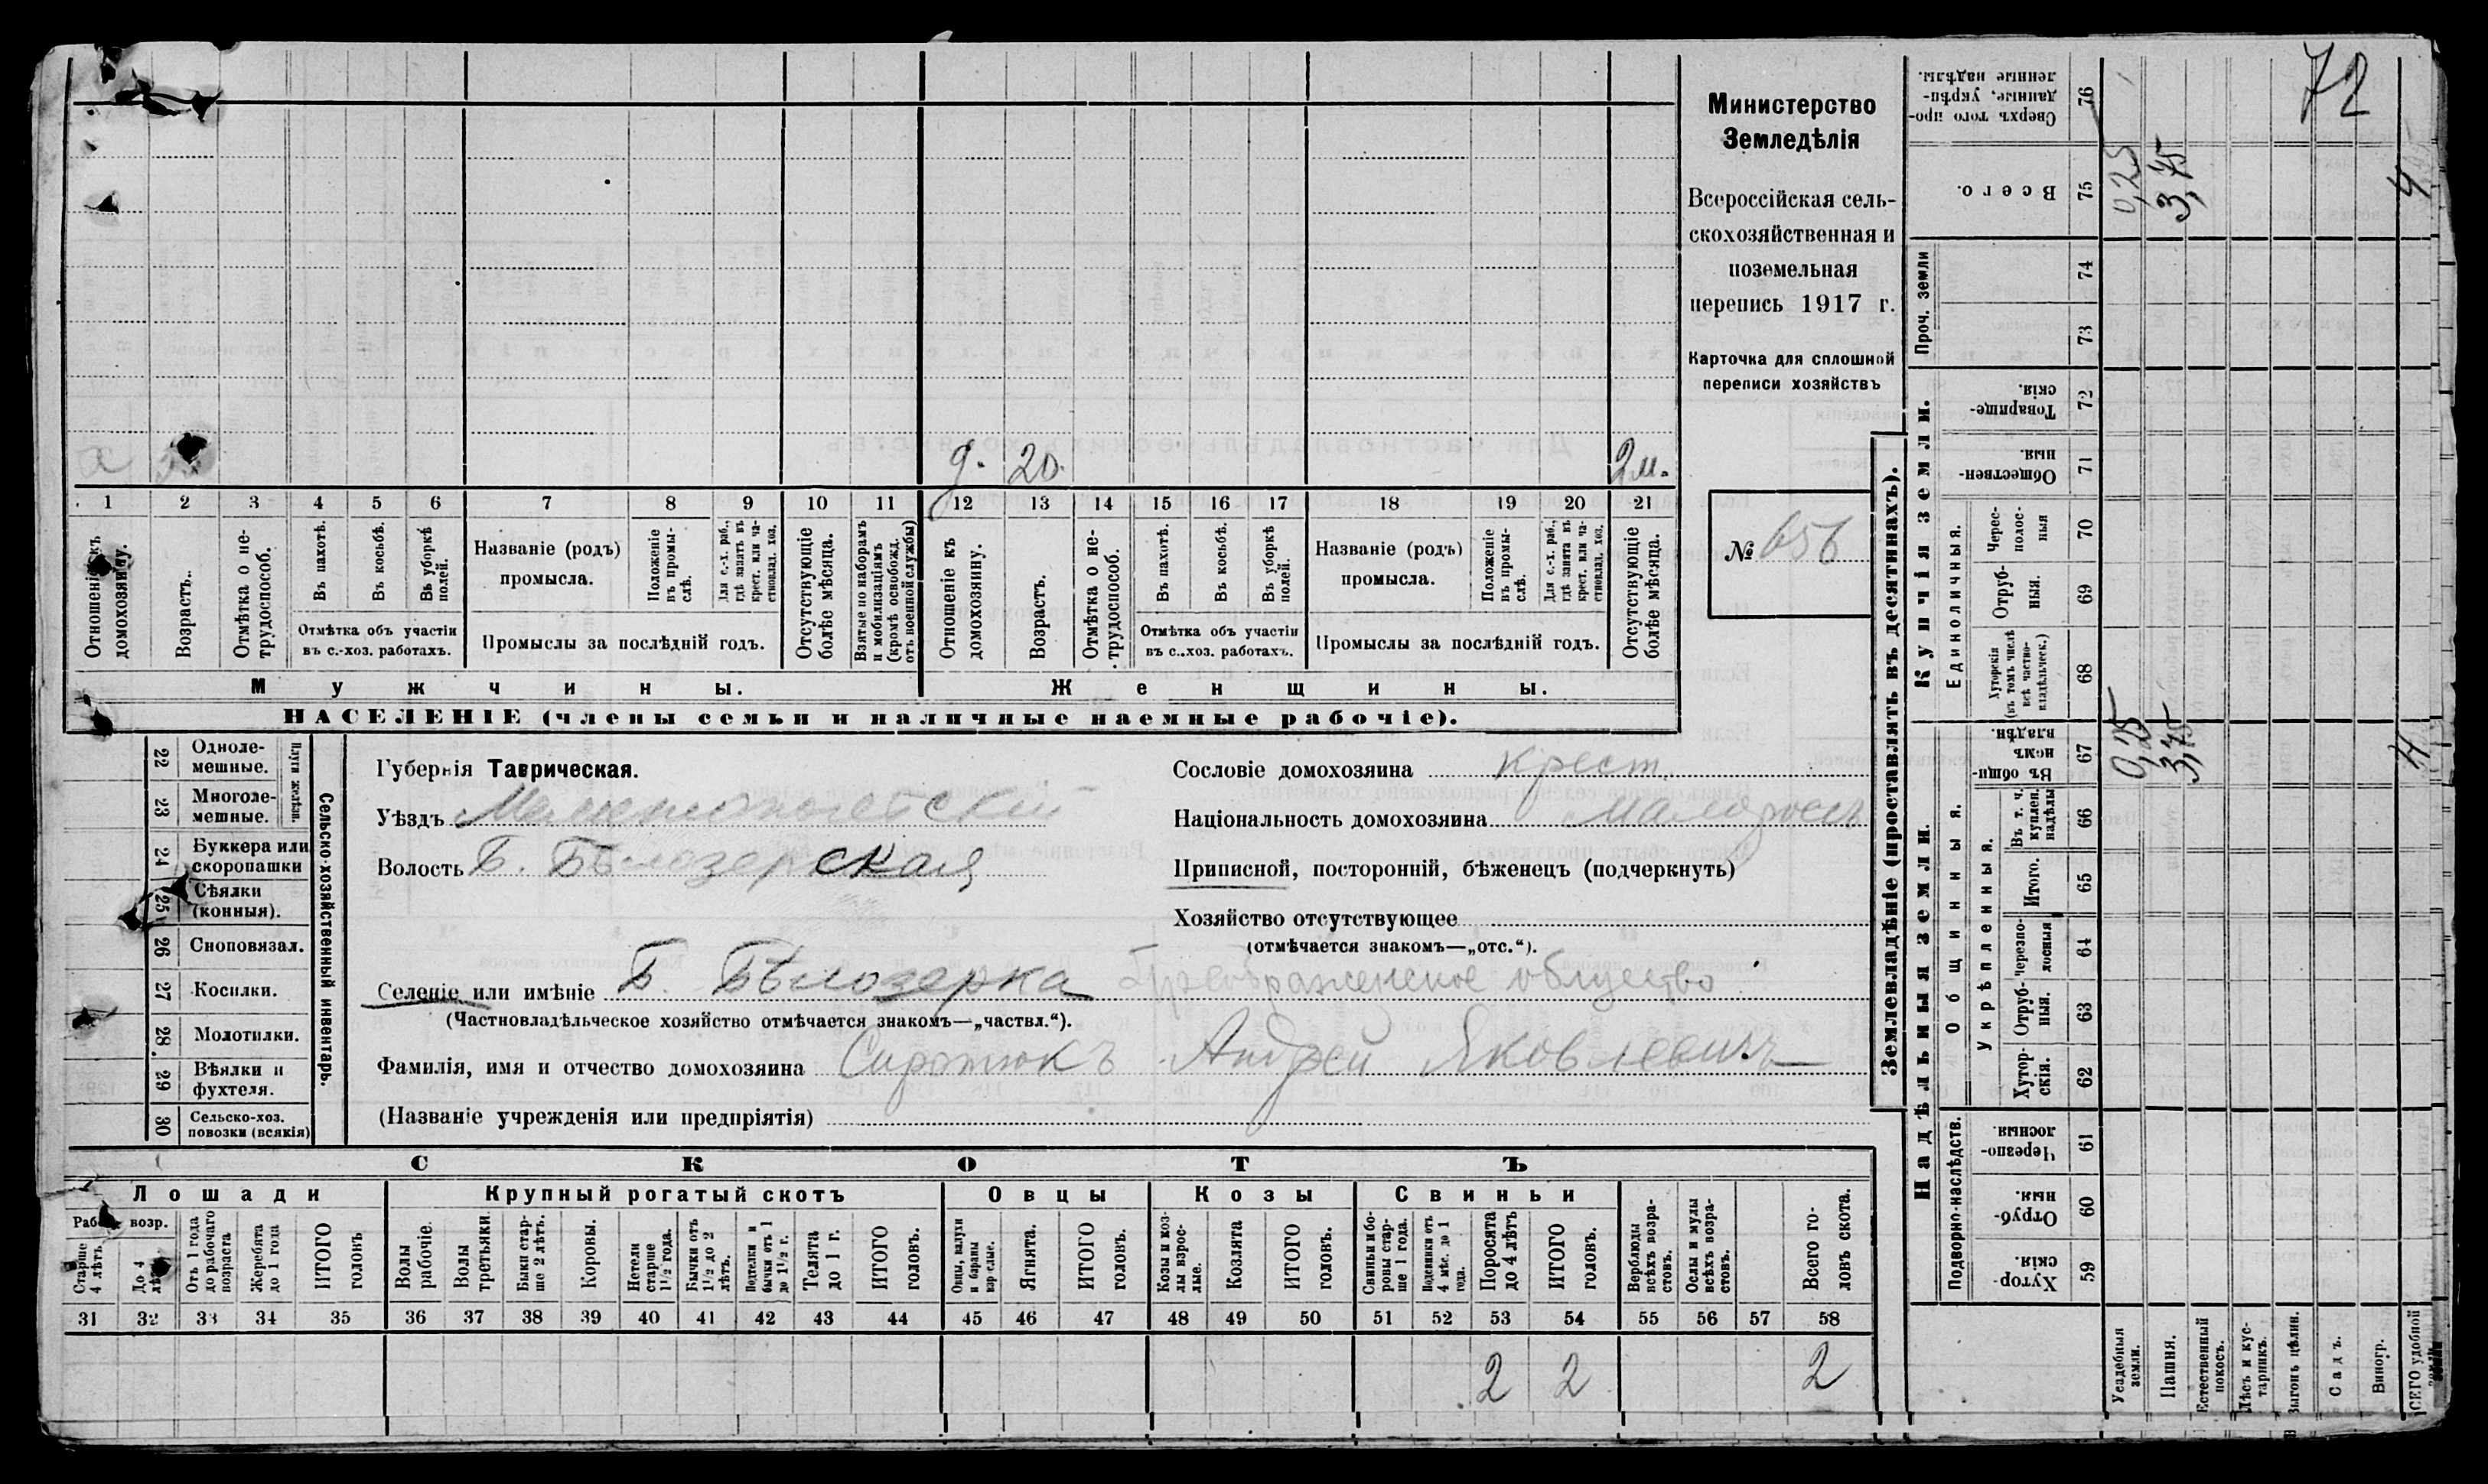 72
Министерство
Земледѣлія
Всероссійская сель-
скохозяйственная и
поземельная
перепись 1917 г.
Карточка для сплошной
переписи хозяйствъ
№ 656
д. 20. 2 м.
1 2 3 4 5 6 7 8 9 10 11 12 13 14 15 16 17 18 19 20 21
Отношеніе къ домохозяину.
Возрастъ.
Отмѣтка о не-трудоспособ.
Въ пахотѣ.
Въ косьбѣ.
Въ уборкѣ полей.
Отмѣтка объ участіи
въ с.-хоз. работахъ.
Названіе (родъ)
промысла.
Положеніе въ промы-слѣ.
Для с.-х. раб., гдѣ занятъ въ крест. или ча-стновлад. хоз.
Промыслы за послѣдній годъ.
Отсутствующіе болѣе мѣсяца.
Взятые по наборамъ и мобилизаціямъ (кромѣ освобожд. отъ военной службы)
Отношеніе къ домохозяину.
Возрастъ.
Отмѣтка о не-трудоспособ.
Въ пахотѣ.
Въ косьбѣ.
Въ уборкѣ полей.
Отмѣтка объ участіи
въ с.-хоз. работахъ.
Названіе (родъ)
промысла.
Положеніе въ промы-слѣ.
Для с.-х. раб., гдѣ занята въ крест. или ча-стновлад. хоз.
Промыслы за послѣдній годъ.
Отсутствующіе болѣе мѣсяца.
Мужчины. Женщины.
НАСЕЛЕНІЕ (члены семьи и наличные наемные рабочіе).
22 Одноле-мешные.
23 Многоле-мешные.
Плуги желѣзн.
24 Буккера или скоропашки
25 Сѣялки (конныя).
26 Сноповязал.
27 Косилки.
28 Молотилки.
29 Вѣялки и фухтеля.
30 Сельско-хоз. повозки (всякія)
Сельско-хозяйственный инвентарь.
Губернія Таврическая.
Уѣздъ Мелитопольскій
Волость Б. Бѣлозерская
Сословіе домохозяина крест.
Національность домохозяина малоросъ
Приписной, посторонній, бѣженецъ (подчеркнуть)
Хозяйство отсутствующее
(отмѣчается знакомъ—„отс.“).
Селеніе или имѣніе Б. Бѣлозерка Преображенское общество
(Частновладѣльческое хозяйство отмѣчается знакомъ—„частвл.“).
Фамилія, имя и отчество домохозяина Сиротюкъ Андрей Яковлевичъ
(Названіе учрежденія или предпріятія)
СКОТЪ
Лошади Крупный рогатый скотъ Овцы Козы Свиньи
Рабоч. возр.
Старше 4 лѣтъ.
До 4 лѣтъ
Отъ 1 года до рабочаго возраста
Жеребята до 1 года
ИТОГО головъ
Волы рабочіе.
Волы третьяки.
Быки стар-ше 2 лѣтъ.
Коровы.
Нетели старше 1½ года.
Бычки отъ 1½ до 2 лѣтъ.
Подтелки и бычки отъ 1 до 1½ г.
Телята до 1 г.
ИТОГО головъ.
Овцы, валухи и бараны взрослые.
Ягнята.
ИТОГО головъ.
Козы и коз-лы взрос-лые.
Козлята
ИТОГО головъ.
Свиньи и бо-ровы стар-ше 1 года.
Подсвинки отъ 4 мѣс. до 1 года.
Поросята до 4 лѣтъ
ИТОГО головъ.
Верблюды всѣхъ возра-стовъ.
Ослы и мулы всѣхъ возра-стовъ.
Всего го-ловъ скота.
31 32 33 34 35 36 37 38 39 40 41 42 43 44 45 46 47 48 49 50 51 52 53 54 55 56 57 58
2 2 2
Землевладѣніе (проставлять въ десятинахъ).
Надѣльныя земли. Купчія земли.
Подворно-наслѣдств.
Общинныя.
Укрѣпленныя.
Единоличныя.
Проч. земли
Сверхъ того про-данные, укрѣп-ленные надѣлы. 76
Всего. 75 0,25 3,75 4
74
73
Товарище-скія. 72
Обществен-ныя. 71
Черес-полос-ныя 70
Отруб-ныя. 69
Хуторскія (въ томъ числѣ всѣ частно-владѣльческ.) 68
Въ общин-номъ владѣн. 67 0,25 3,75 4
Въ т. ч. куплен. надѣлы 66
Итого. 65
Черезпо-лосныя 64
Отруб-ныя. 63
Хутор-скія. 62
Черезпо-лосныя. 61
Отруб-ныя. 60
Хутор-скія 59
Усадебныя земли.
Пашня.
Естественный покосъ.
Лѣсъ и кус-тарникъ.
Выгонъ цѣлин.
Садъ.
Виногр.
ВСЕГО удобной